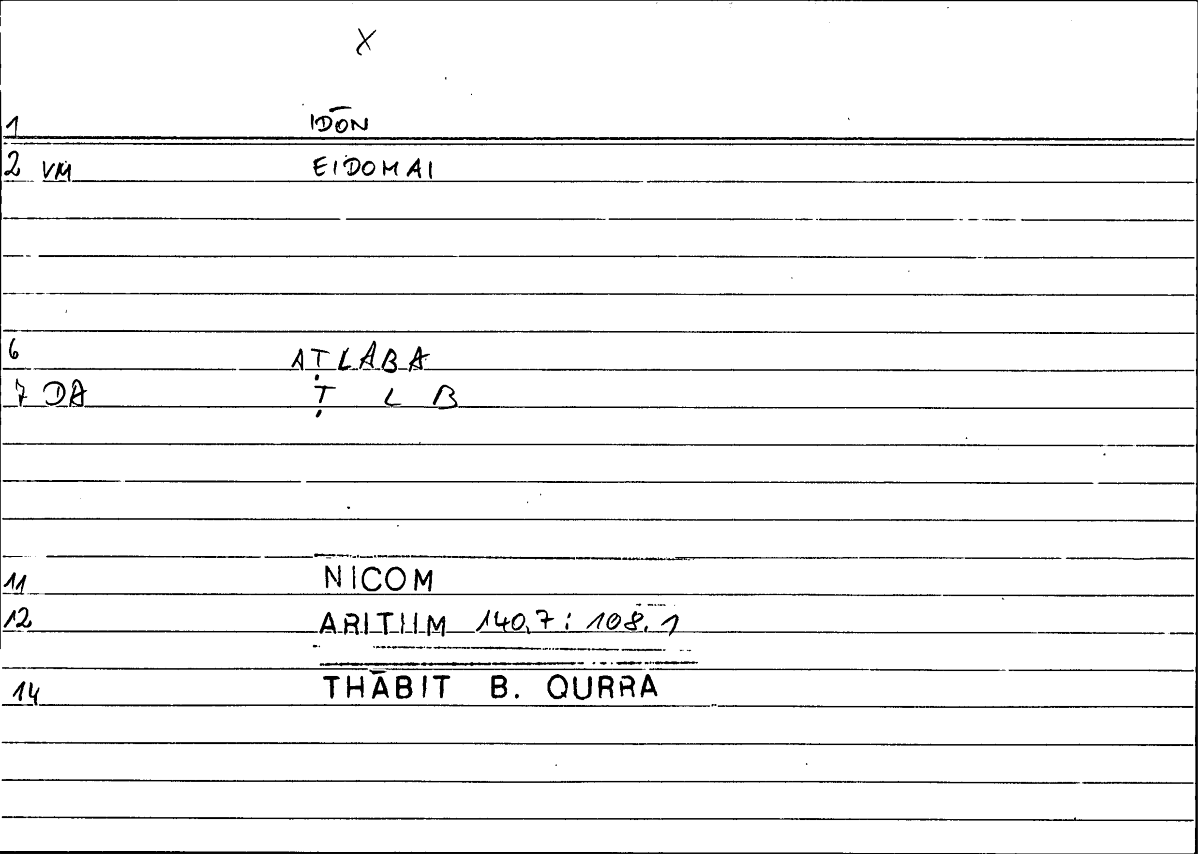 X
1 IDŌN
2 VM EIDOMAI
6 AṬLĀBA
7 DA Ṭ L B
11 NICOM
12 ARITHM 140,7 : 108.1
14 THĀBIT B. QURRA